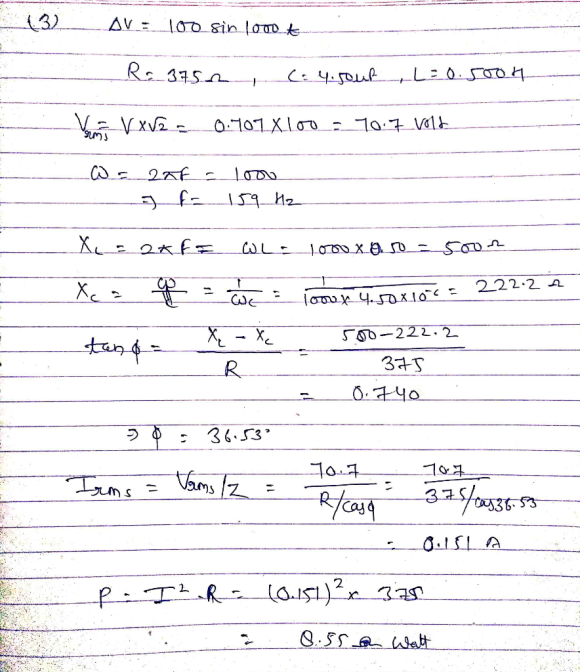 (3) ΔV = 100 sin 1000 t
R = 375 Ω , C = 4.50 uF , L = 0.500 H
Vrms = V x √2 = 0.707 X 100 = 70.7 Volt
ω = 2πf = 1000
⇒ f = 159 Hz
XL = 2πf = ωL = 1000 x 0.50 = 500 Ω
Xc = = 1/ωc = 1/(1000 x 4.50 x 10^-6) = 222.2 Ω
tan φ = (XL - Xc)/R = (500 - 222.2)/375
= 0.740
⇒ φ = 36.53°
Irms = Vrms/Z = 70.7/(R/cos φ) = 70.7/(375/cos 36.53)
= 0.151 A
P = I² . R = (0.151)² x 375
= 8.55 Watt